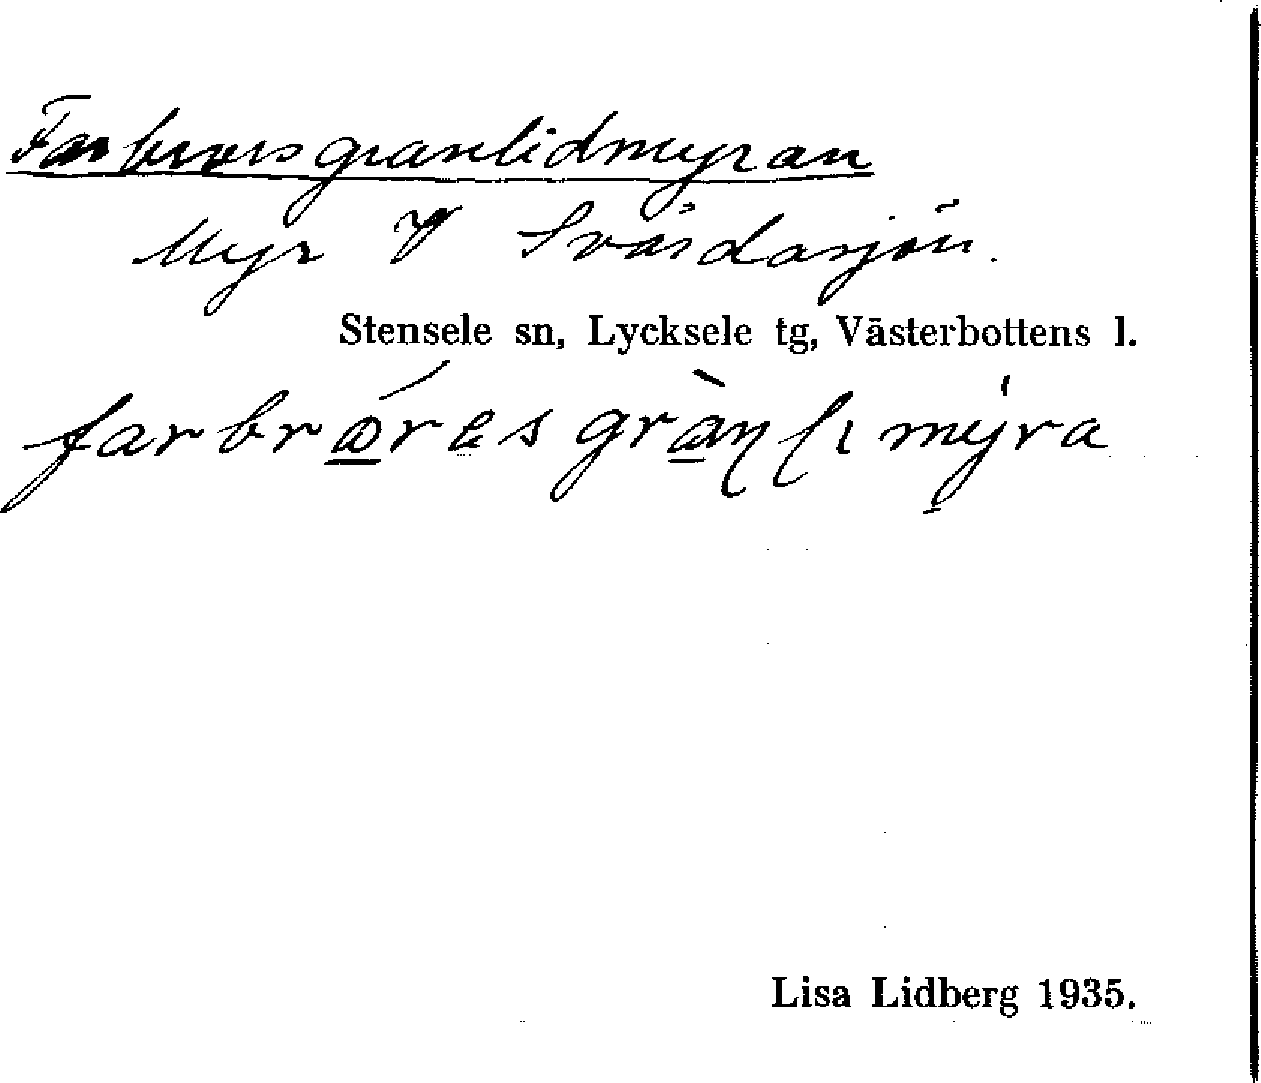 Farbrorsgranlidmyran
Myr V Svärdasjön.
Stensele sn, Lycksele tg, Västerbottens l.
Lisa Lidberg 1935.